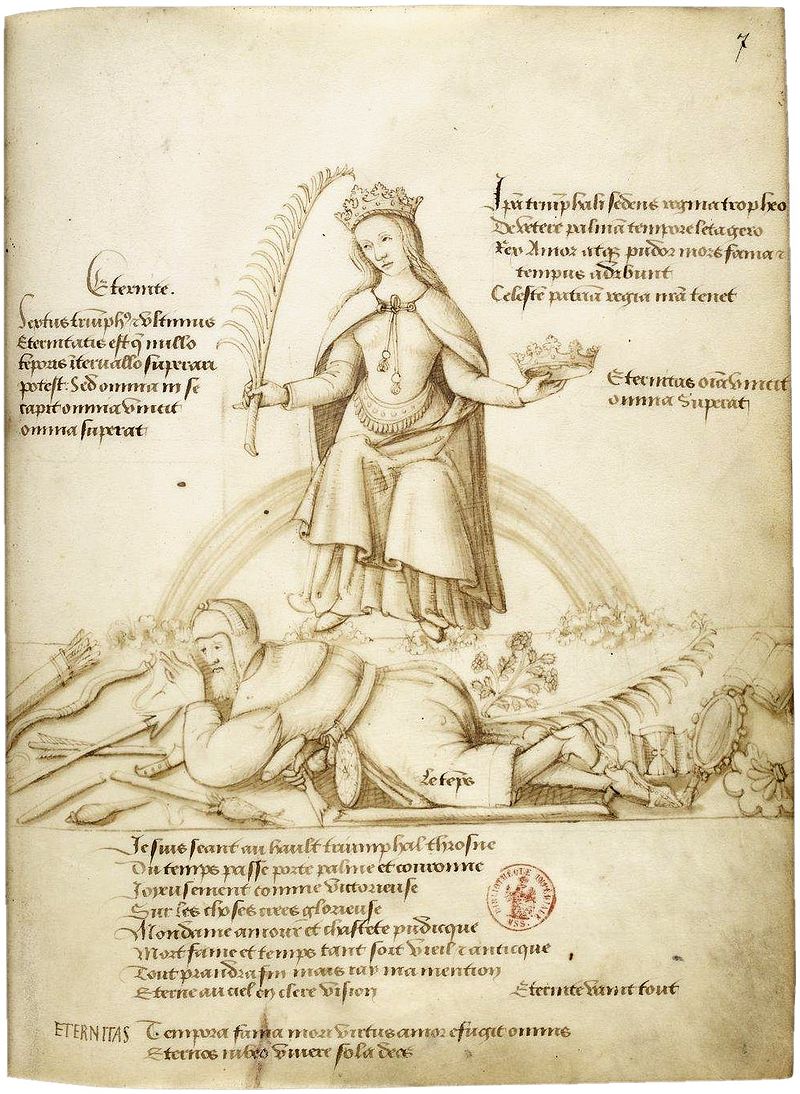 7
Ipā triūphali sedens regina tropheo
De vetere palmā tempore leta gero
Rex Amor atq pudor mors fama ⁊
tempus adibunt
Celestē patriā regia mā tenet
Eternite.
Sextus triūph⁹ ⁊ Vltimus
Eternitatis est q nullo
tēporis īteruallo superari
potest. Sed omnia in se
capit omnia vincit
omnia superat
Eternitas oīa vincit
omnia Superat
Le tēps
Je suis seant au hault triumphal throsne
Du temps passe porte palme et couronne
Joyeusement comme victorieuse
Sur les choses crees glorieuse
Mondame amour et chastete pudicque
Mort fame et temps tant soit vieil ⁊ anticque
Tout prandra fin mais iay ma mention
Eterne au ciel en clere vision
Eternite vainc tout
BIBLIOTHEQUE IMPERIALE
MSS.
ETERNITAS Tempora fama mors virtus amor effugit omnis
Eternos iubeo viuere sola deos